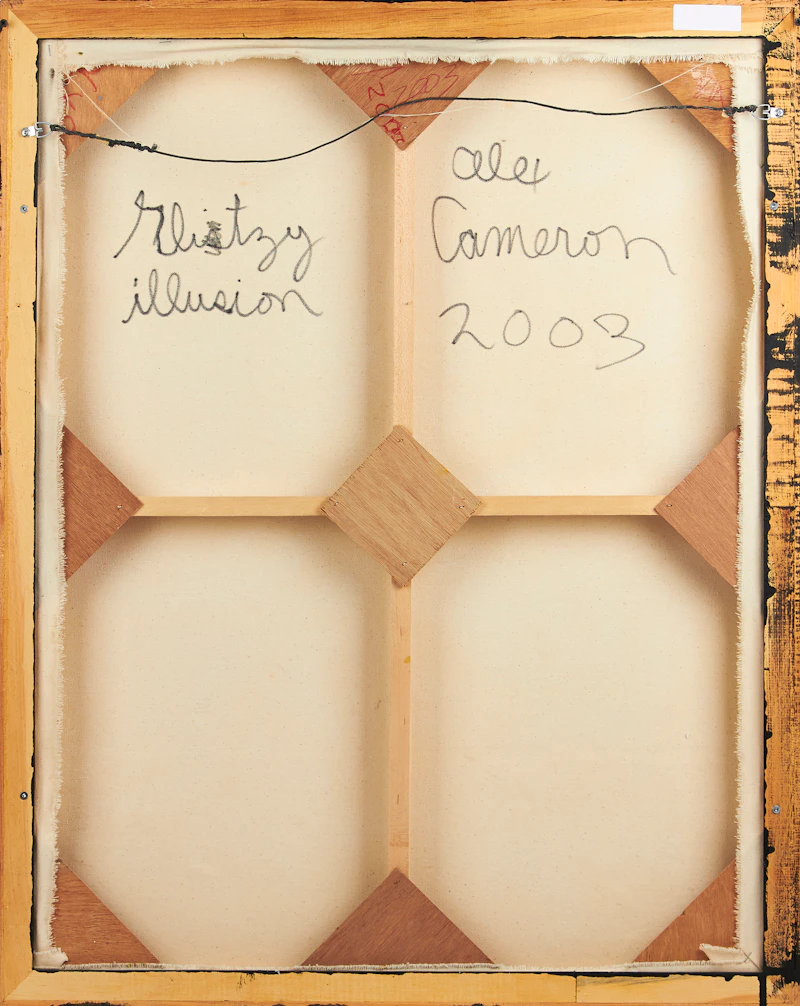 Glitzy
illusion
alex
Cameron
2003
2003